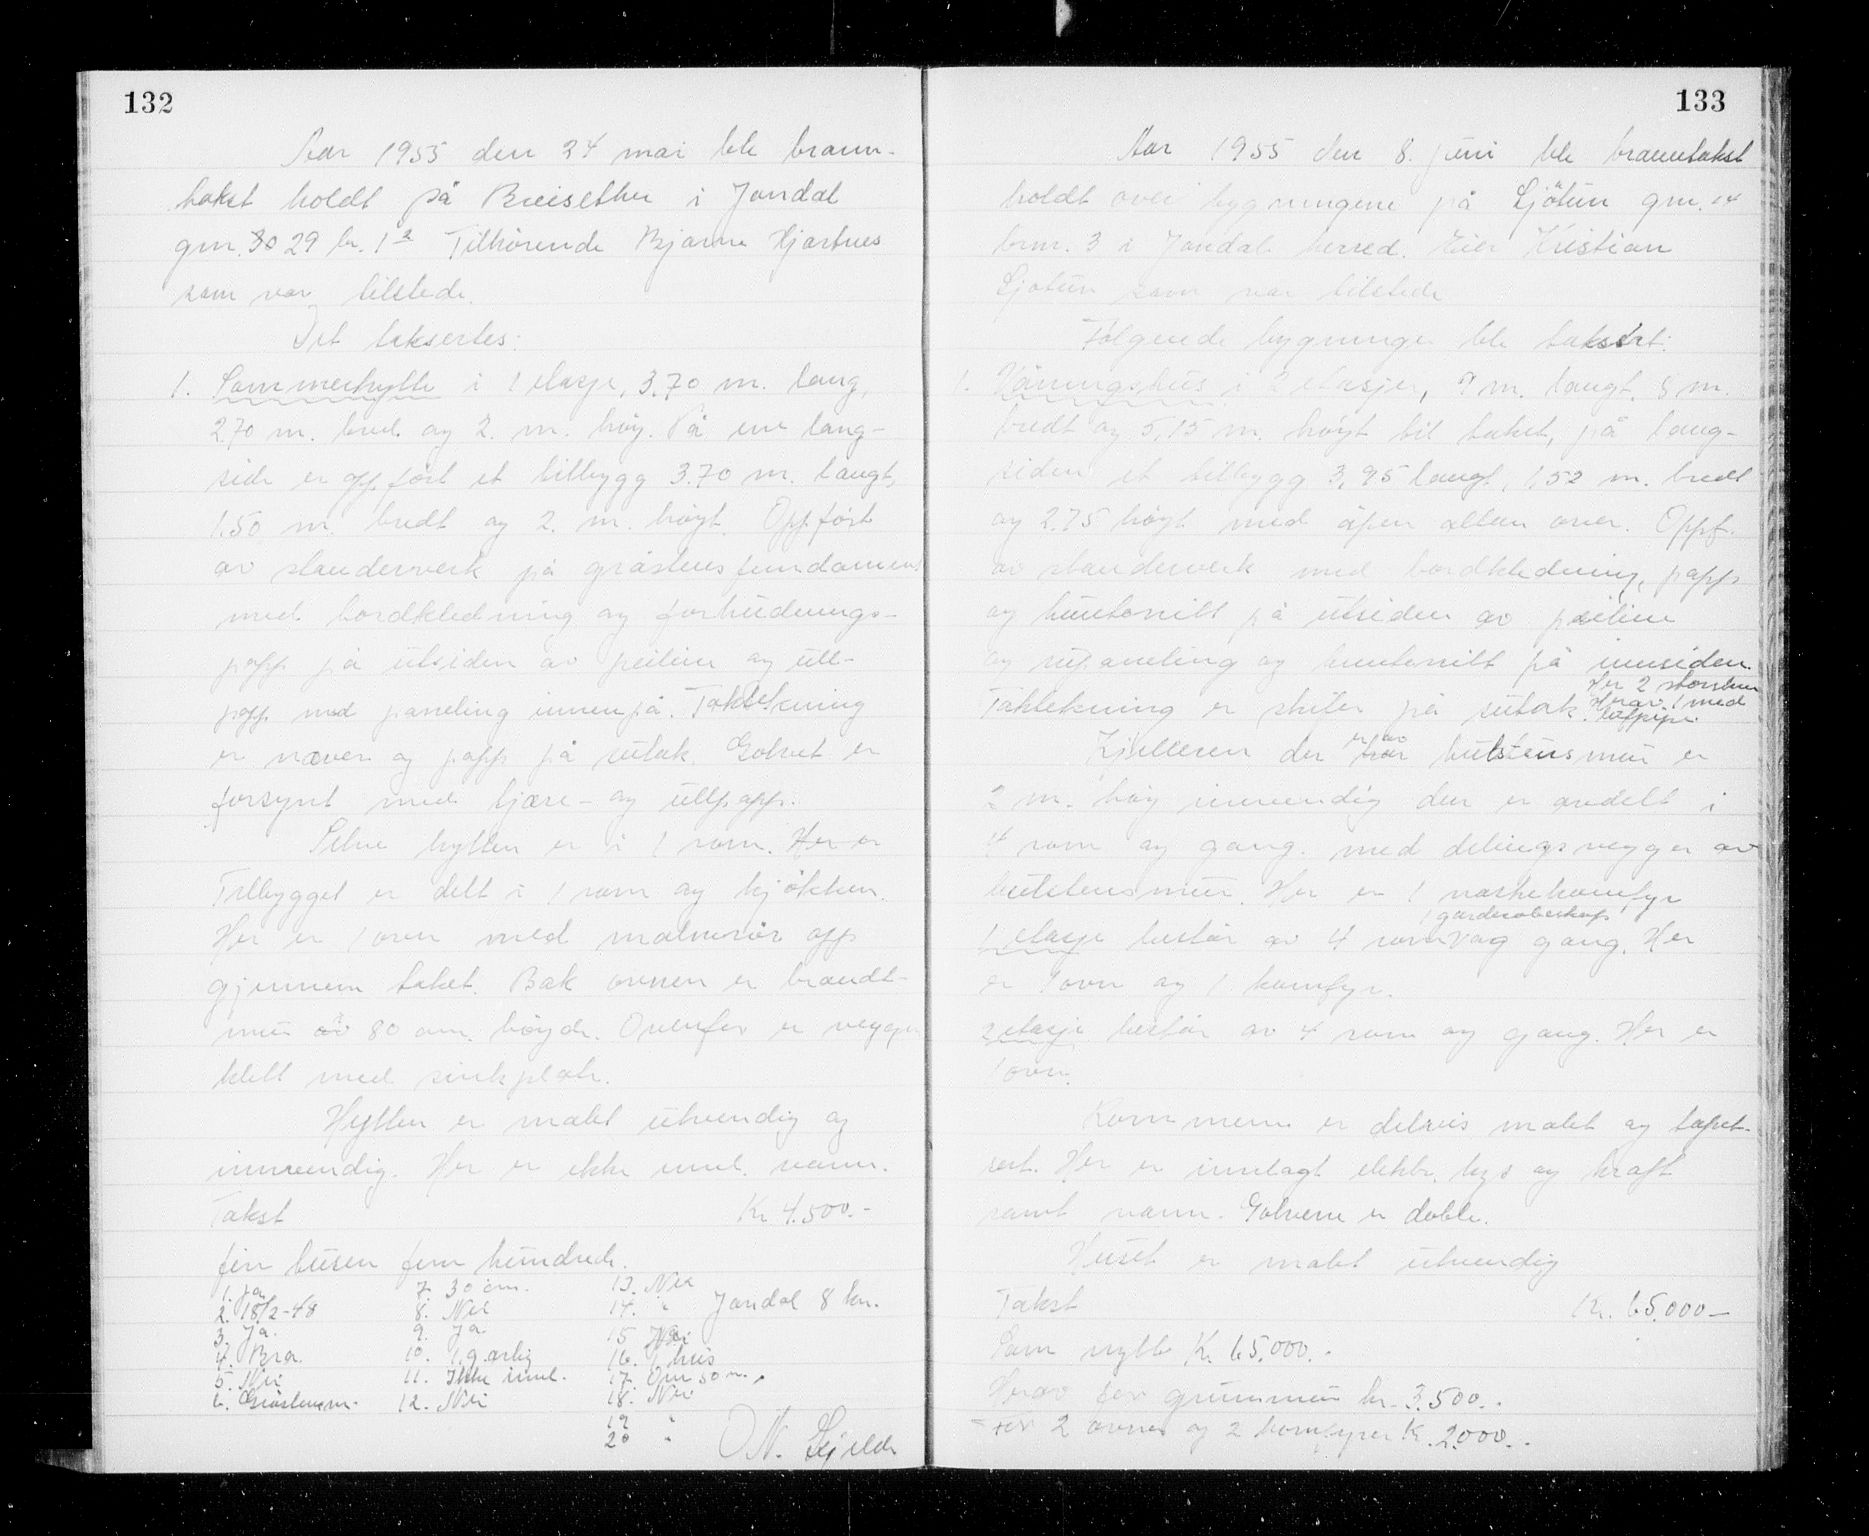 132
Aar 1955 den 24 mai ble brann-
takst holdt på Breisether i Jondal
gnr. 30 29 br. 1² Tilhørende Bjarne Hjartnes
som var tilstede.
Det takseertes:
1. Sommerhytte i 1 etasje, 3,70 m. lang,
2.70 m. bred og 2. m. høy. På ene lang-
side er oppført et tilbygg 3.70 m. langt,
1.50 m. bredt og 2. m. høyt. Oppført
av standerverk på gråstensfundament
med bordkledning og forhudnings-
papp på utsiden av peiline og ull-
papp med paneling innenpå. Taktekning
er næver og papp på sutak. Golvet er
forsynt med tjære- og ullpapp.
Selve hytten er i 1 rom. Her er
Tilbygget er delt i 1 rom og kjøkken.
Her er 1 ovn med malmrør opp
gjennem taket. Bak ovnen er brandt-
mur av 80 cm. høyde. Ovenfor er veggen
kledt med sinkplate.
Hytten er malt utvendig og
innvendig. Her er ikke innl. vann.
Takst Kr. 4.500.-
fire tusen fem hundrede.
1. Ja 7. 30 cm. 13. Nei
2. 18/2-48 8. Nei 14. " Jondal 8 km.
3. Ja. 9. Ja 15 Nei
4. Bra. 10. 1.g. årlig 16. 1 hus
5. Nei 11. Ikke innl. 17. Om 50 m.
6. Gråstensm. 12. Nei 18. Nei
19 "
20 "
O.N. Sjelde
133
Aar 1955 den 8. juni ble branntakst
holdt over bygningene på Sjötun gnr. 14
brn. 3 i Jondal herred. Eier Kristian
Sjotun som var tilstede
Følgende bygninger ble taksert:
1. Våningshus i 2 etasjer, 9 m. langt, 8 m.
bredt og 5,15 m. høyt til taket, på lang-
siden et tilbygg 3,95 langt, 1,52 m. bredt
og 2.75 høyt med åpen altan over. Oppf.
av standerverk med bordkledning, papp
og huntonitt på utsiden av peiline
og rupaneling og huntonitt på innsiden.
Her 2 skorstein
Taktekning er skifer på sutak. Herav 1 med
luftpipe.
er av
Kjelleren der har hulstensmur er
2 m. høy innvendig den er avdelt i
4 rom og gang. med delingsvegger av
hulstensmur. Her er 1 vaskekomfyr
1 garderobeskap
1 etasje består av 4 rom og gang. Her
er 1 ovn og 1 komfyr.
2 etasje består av 4 rom og gang. Her er
1 ovn.
Rommene er delvis malt og tapet-
sert. Her er innlagt elektr. lys og kraft
samt vann. Golvene er doble.
Huset er malt utvendig
Takst Kr. 65.000-
Som nytt Kr. 65.000.-
Herav for grunnmur kr. 3.500.-
- for 2 ovner og 2 komfyrer Kr. 2.000.-